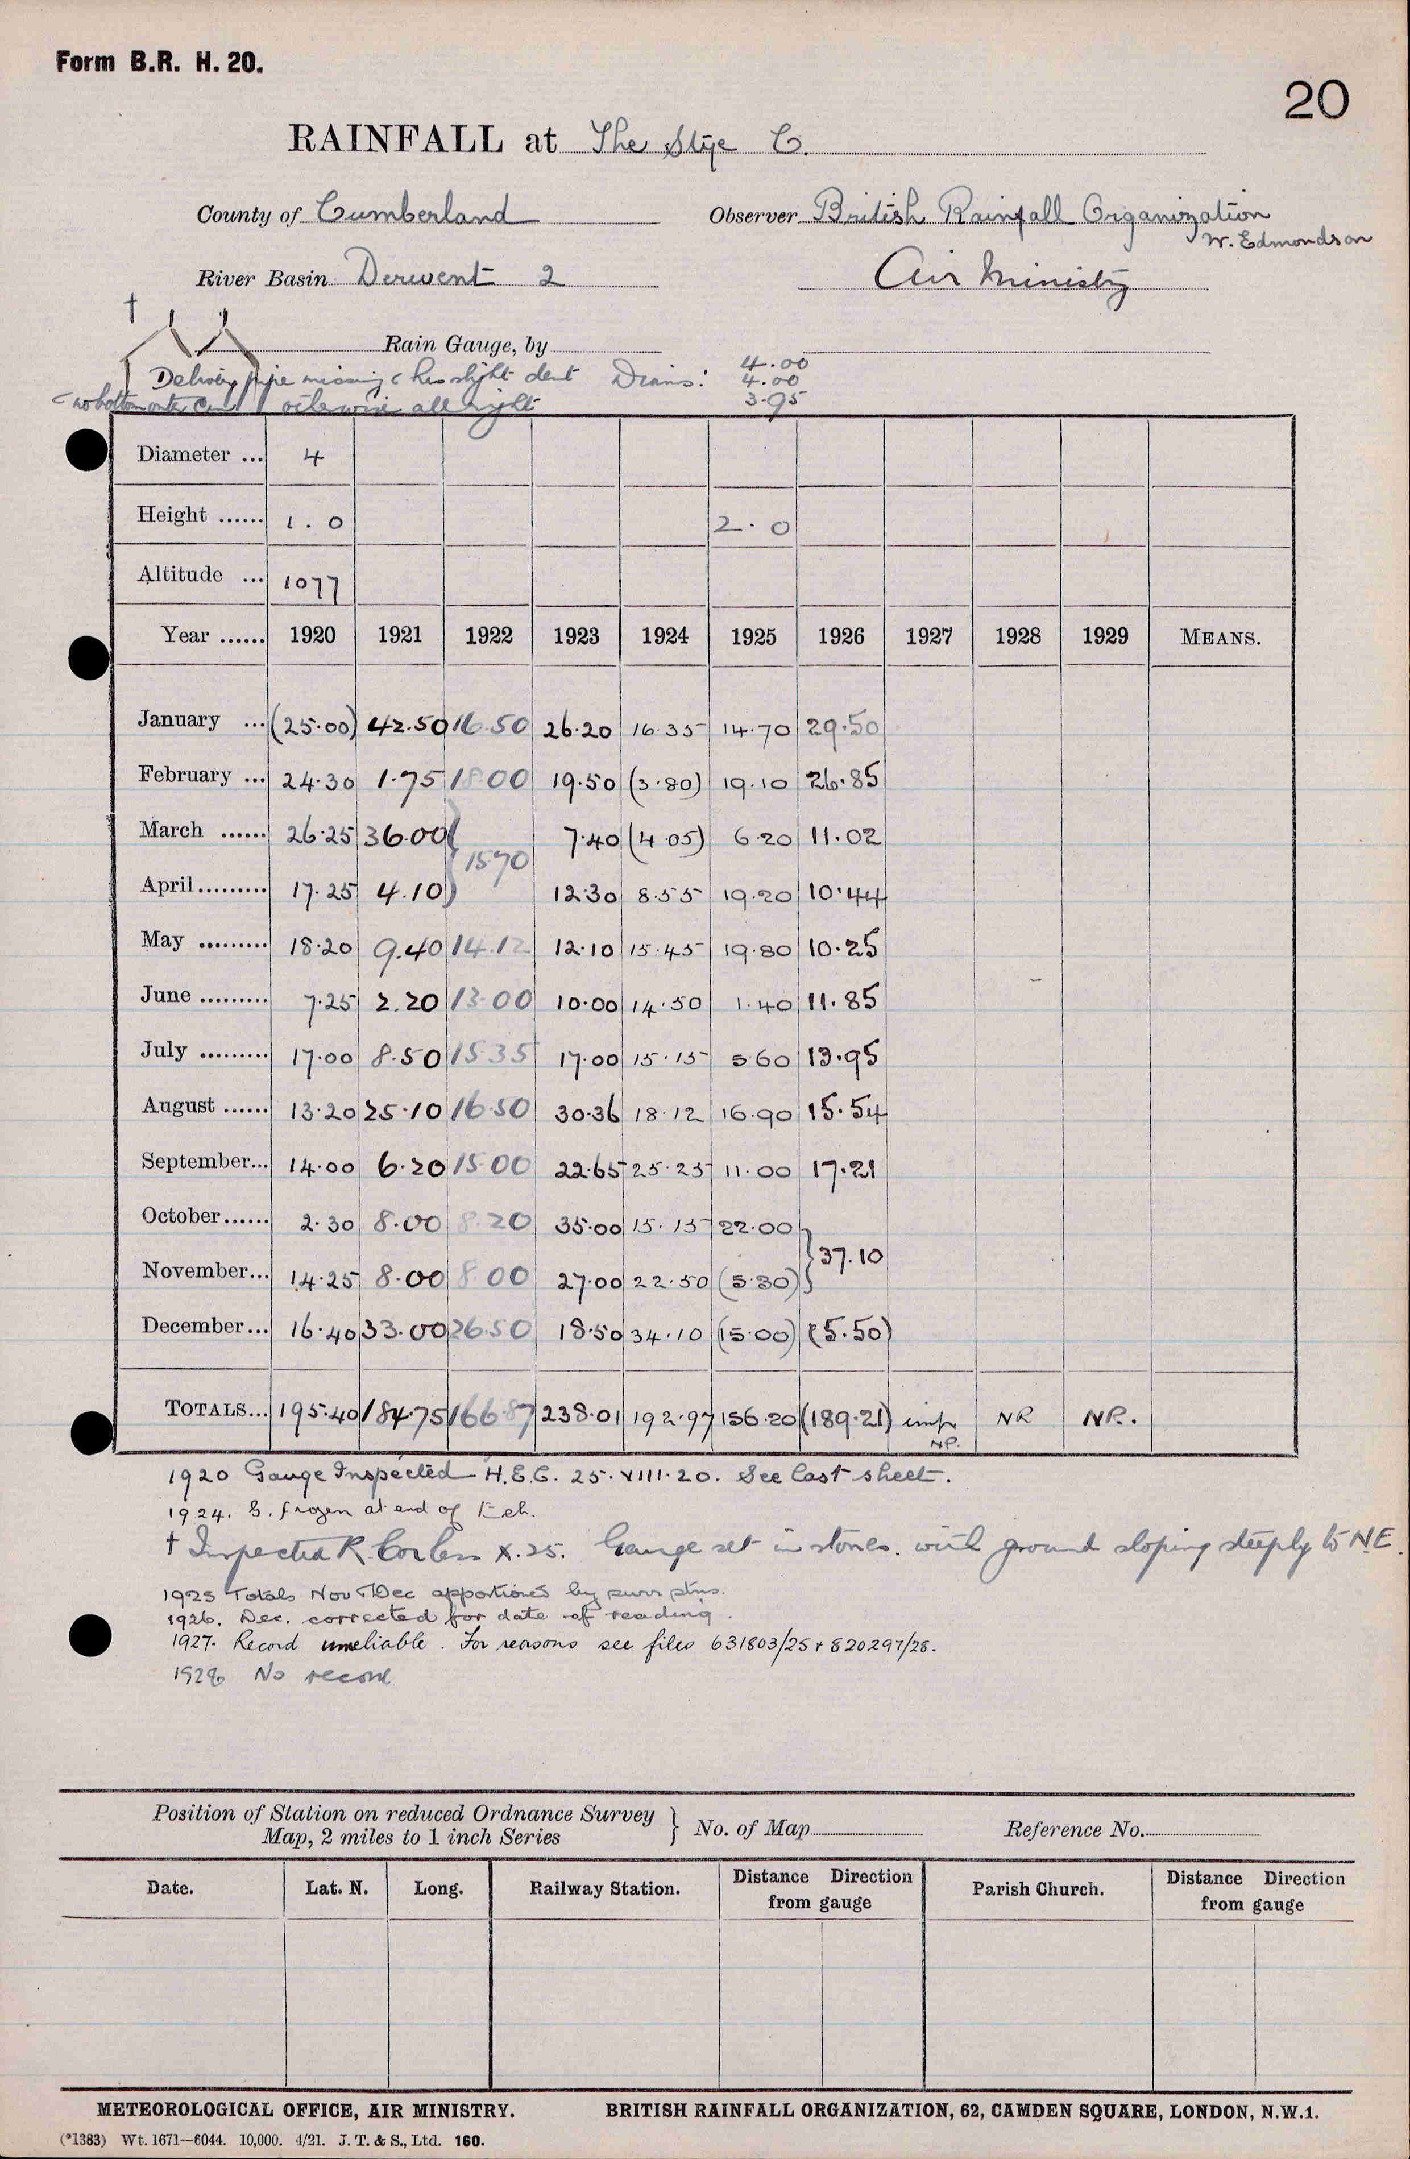 Form B.R. H. 20.
20
RAINFALL at The Stye C.
County of Cumberland Observer British Rainfall Organization
W. Edmondson
River Basin Derwent 2 Air Ministry
†
Rain Gauge, by
Delivery pipe missing & has slight dent Diams: 4.00
4.00
no bottom outer can otherwise all right 3.95
Diameter ... 4
Height ...... 1.0 2.0
Altitude ... 1077
Year ...... 1920 1921 1922 1923 1924 1925 1926 1927 1928 1929 MEANS.
January ... (25.00) 42.50 16.50 26.20 16.35 14.70 29.50
February ... 24.30 1.75 18.00 19.50 (3.80) 19.10 26.85
March ...... 26.25 36.00 } 7.40 (4.05) 6.20 11.02
15.70
April ......... 17.25 4.10 12.30 8.55 19.20 10.44
May ......... 18.20 9.40 14.12 12.10 15.45 19.80 10.25
June ......... 7.25 2.20 13.00 10.00 14.50 1.40 11.85
July ......... 17.00 8.50 15.35 17.00 15.15 5.60 13.95
August ...... 13.20 25.10 16.50 30.36 18.12 16.90 15.54
September... 14.00 6.20 15.00 22.65 25.25 11.00 17.21
October...... 2.30 8.00 8.20 35.00 15.15 22.00 }
37.10
November... 14.25 8.00 8.00 27.00 22.50 (5.30)
December... 16.40 33.00 26.50 18.50 34.10 (15.00) (5.50)
TOTALS... 195.40 184.75 166.87 238.01 192.97 156.20 (189.21) imp NR NR.
NP.
1920 Gauge Inspected H.E.C. 25.VIII.20. See last sheet.
1924. G. frozen at end of Feb.
† Inspected R. Corless X.25. Gauge set in stones. with ground sloping steeply to NE.
1925 Totals Nov & Dec apportioned by surr stns.
1926. Dec. corrected for date of reading.
1927. Record unreliable. For reasons see files 631803/25 + 820297/28.
1928 No record
Position of Station on reduced Ordnance Survey
Map, 2 miles to 1 inch Series } No. of Map Reference No.
Date. Lat. N. Long. Railway Station. Distance Direction
from gauge Parish Church. Distance Direction
from gauge
METEOROLOGICAL OFFICE, AIR MINISTRY. BRITISH RAINFALL ORGANIZATION, 62, CAMDEN SQUARE, LONDON, N.W.1.
(*1383) Wt. 1671—6044. 10,000. 4/21. J. T. & S., Ltd. 160.